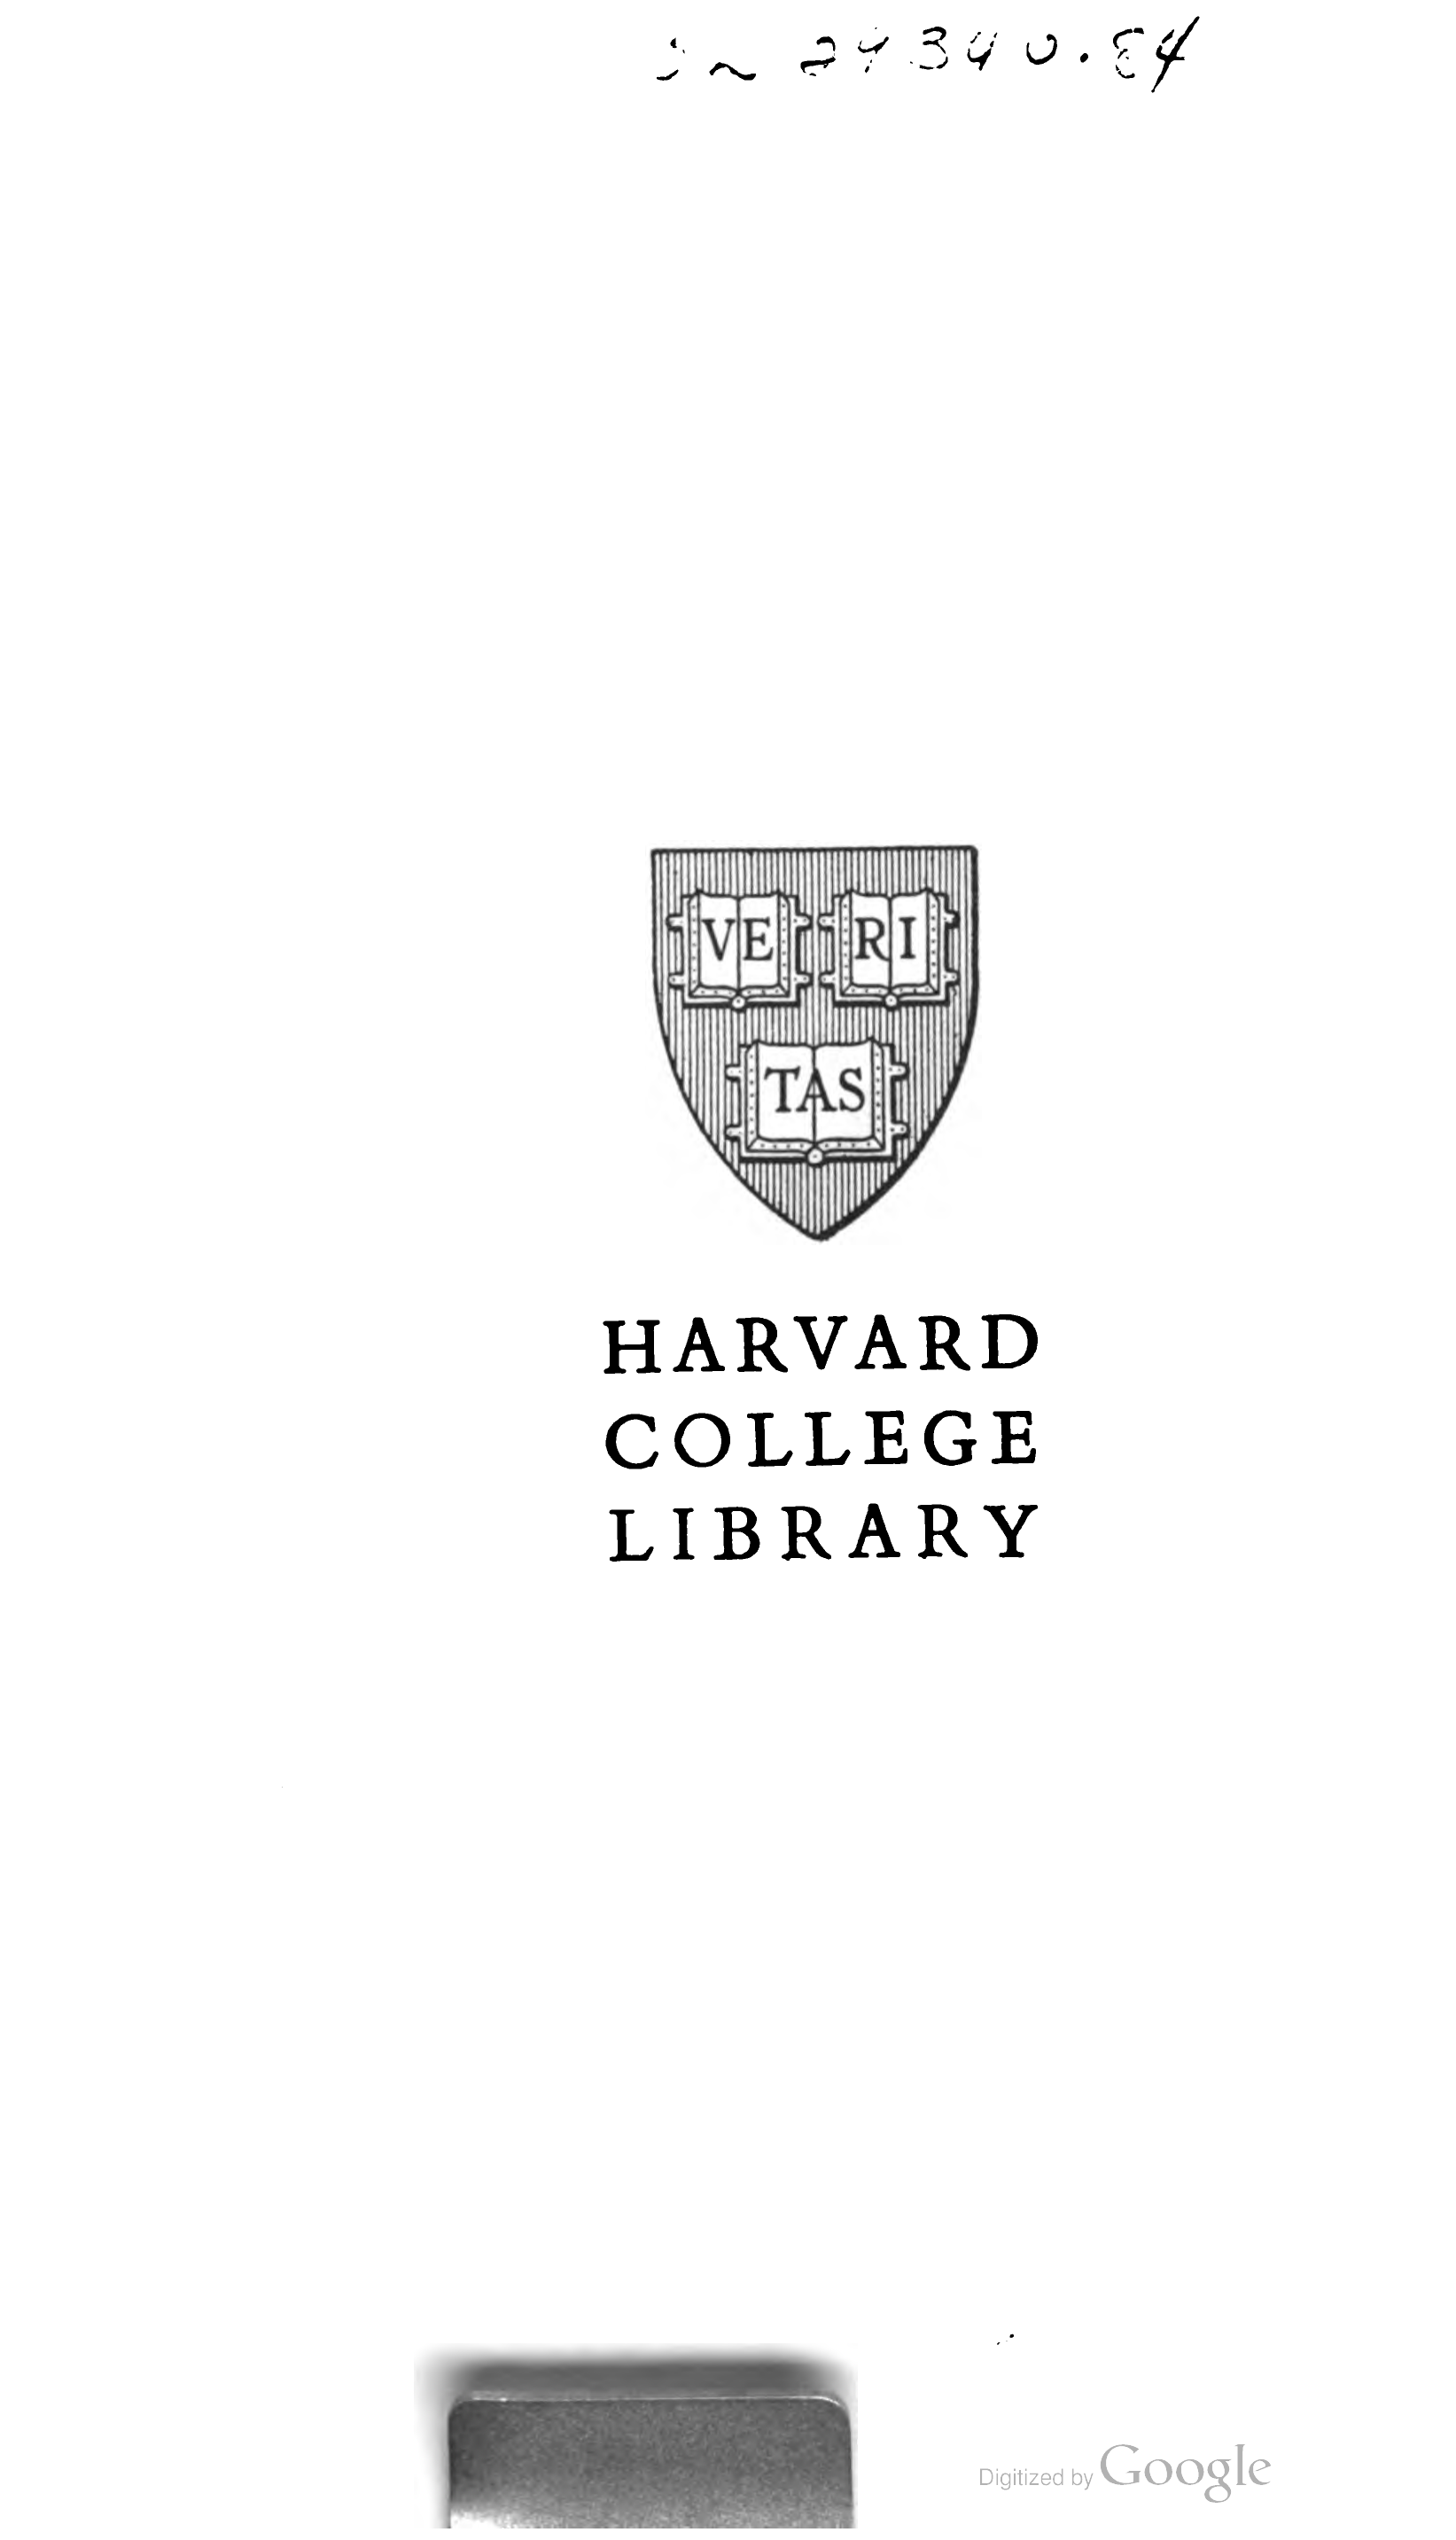 24340.84
VE RI
TAS
HARVARD
COLLEGE
LIBRARY
Digitized by Google